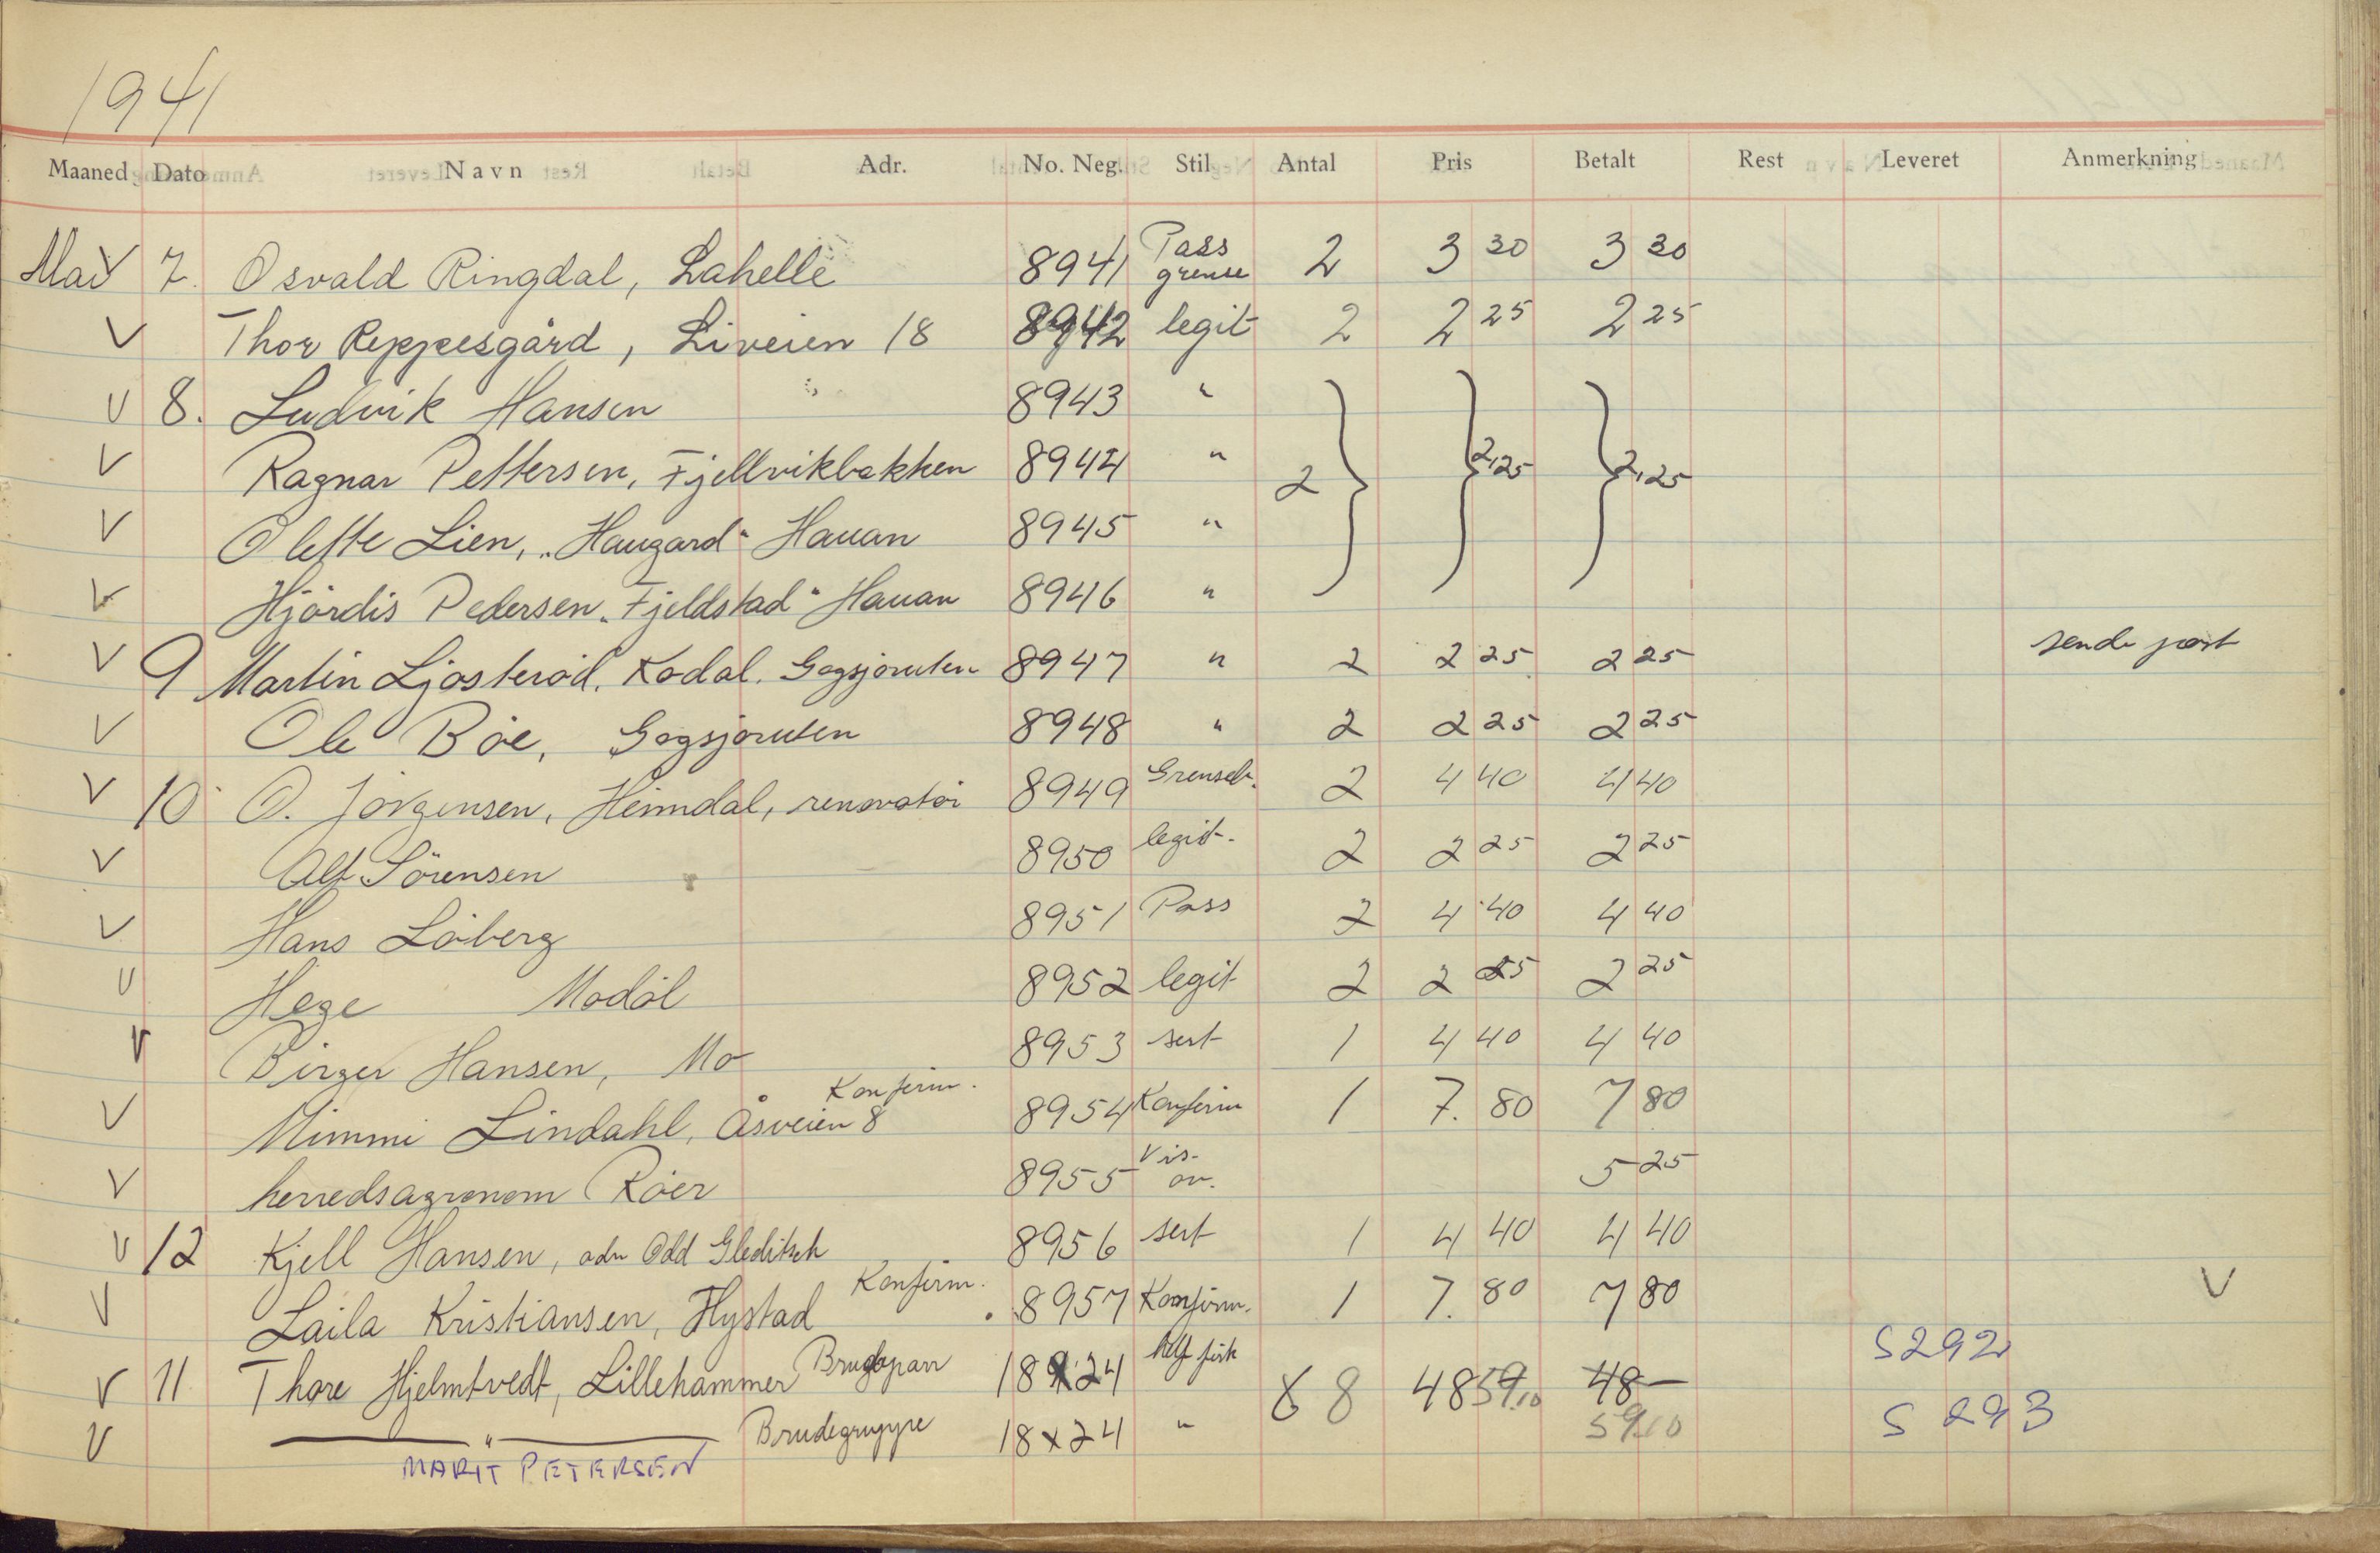 1941
Maaned Dato Navn Adr. No. Neg. Stil Antal Pris Betalt Rest Leveret Anmerkning
Mai V 7. Osvald Ringdal, Lahelle 8941 Pass grense 2 3 30 3 30
V Thor Reppesgård, Liveien 18 8942 legit 2 2 25 2 25
V 8. Ludvik Hansen 8943 "
V Ragnar Pettersen, Fjellvikbakken 8944 " 2 2,25 2,25
V Olette Lien, „Haugard“ Hauan 8945 "
V Hjördis Pedersen „Fjeldstad“ Hauan 8946 "
V 9 Martin Ljosteröd, Kodal. Gogsjöruten 8947 " 2 2 25 2 25 sende post
V Ole Böe, Gogsjöruten 8948 " 2 2 25 2 25
V 10 O. Jörgensen, Heimdal, renovatör 8949 Grenseb. 2 4 40 4 40
V Alf Sörensen 8950 legit. 2 2 25 2 25
V Hans Löberg 8951 Pass 2 4 40 4 40
V Hege Modöl 8952 legit 2 2 25 2 25
V Birger Hansen, Mo 8953 sert 1 4 40 4 40
V Mimmi Lindahl, Åsveien 8 Konfirm. 8954 Konfirm 1 7. 80 7 80
V herredsagronom Röer 8955 Vis. or. 5 25
V 12 Kjell Hansen, adr Odd Gleditsch 8956 sert 1 4 40 4 40
V Laila Kristiansen, Hystad Konfirm. 8957 Konfirm. 1 7. 80 7 80 V
V 11 Thore Hjelmtvedt, Lillehammer Brudepar 18x24 8 48 59.10 48— S292
V — " — Brudegruppe 18x24 " 59.10 S 293
MARIT PETERSEN